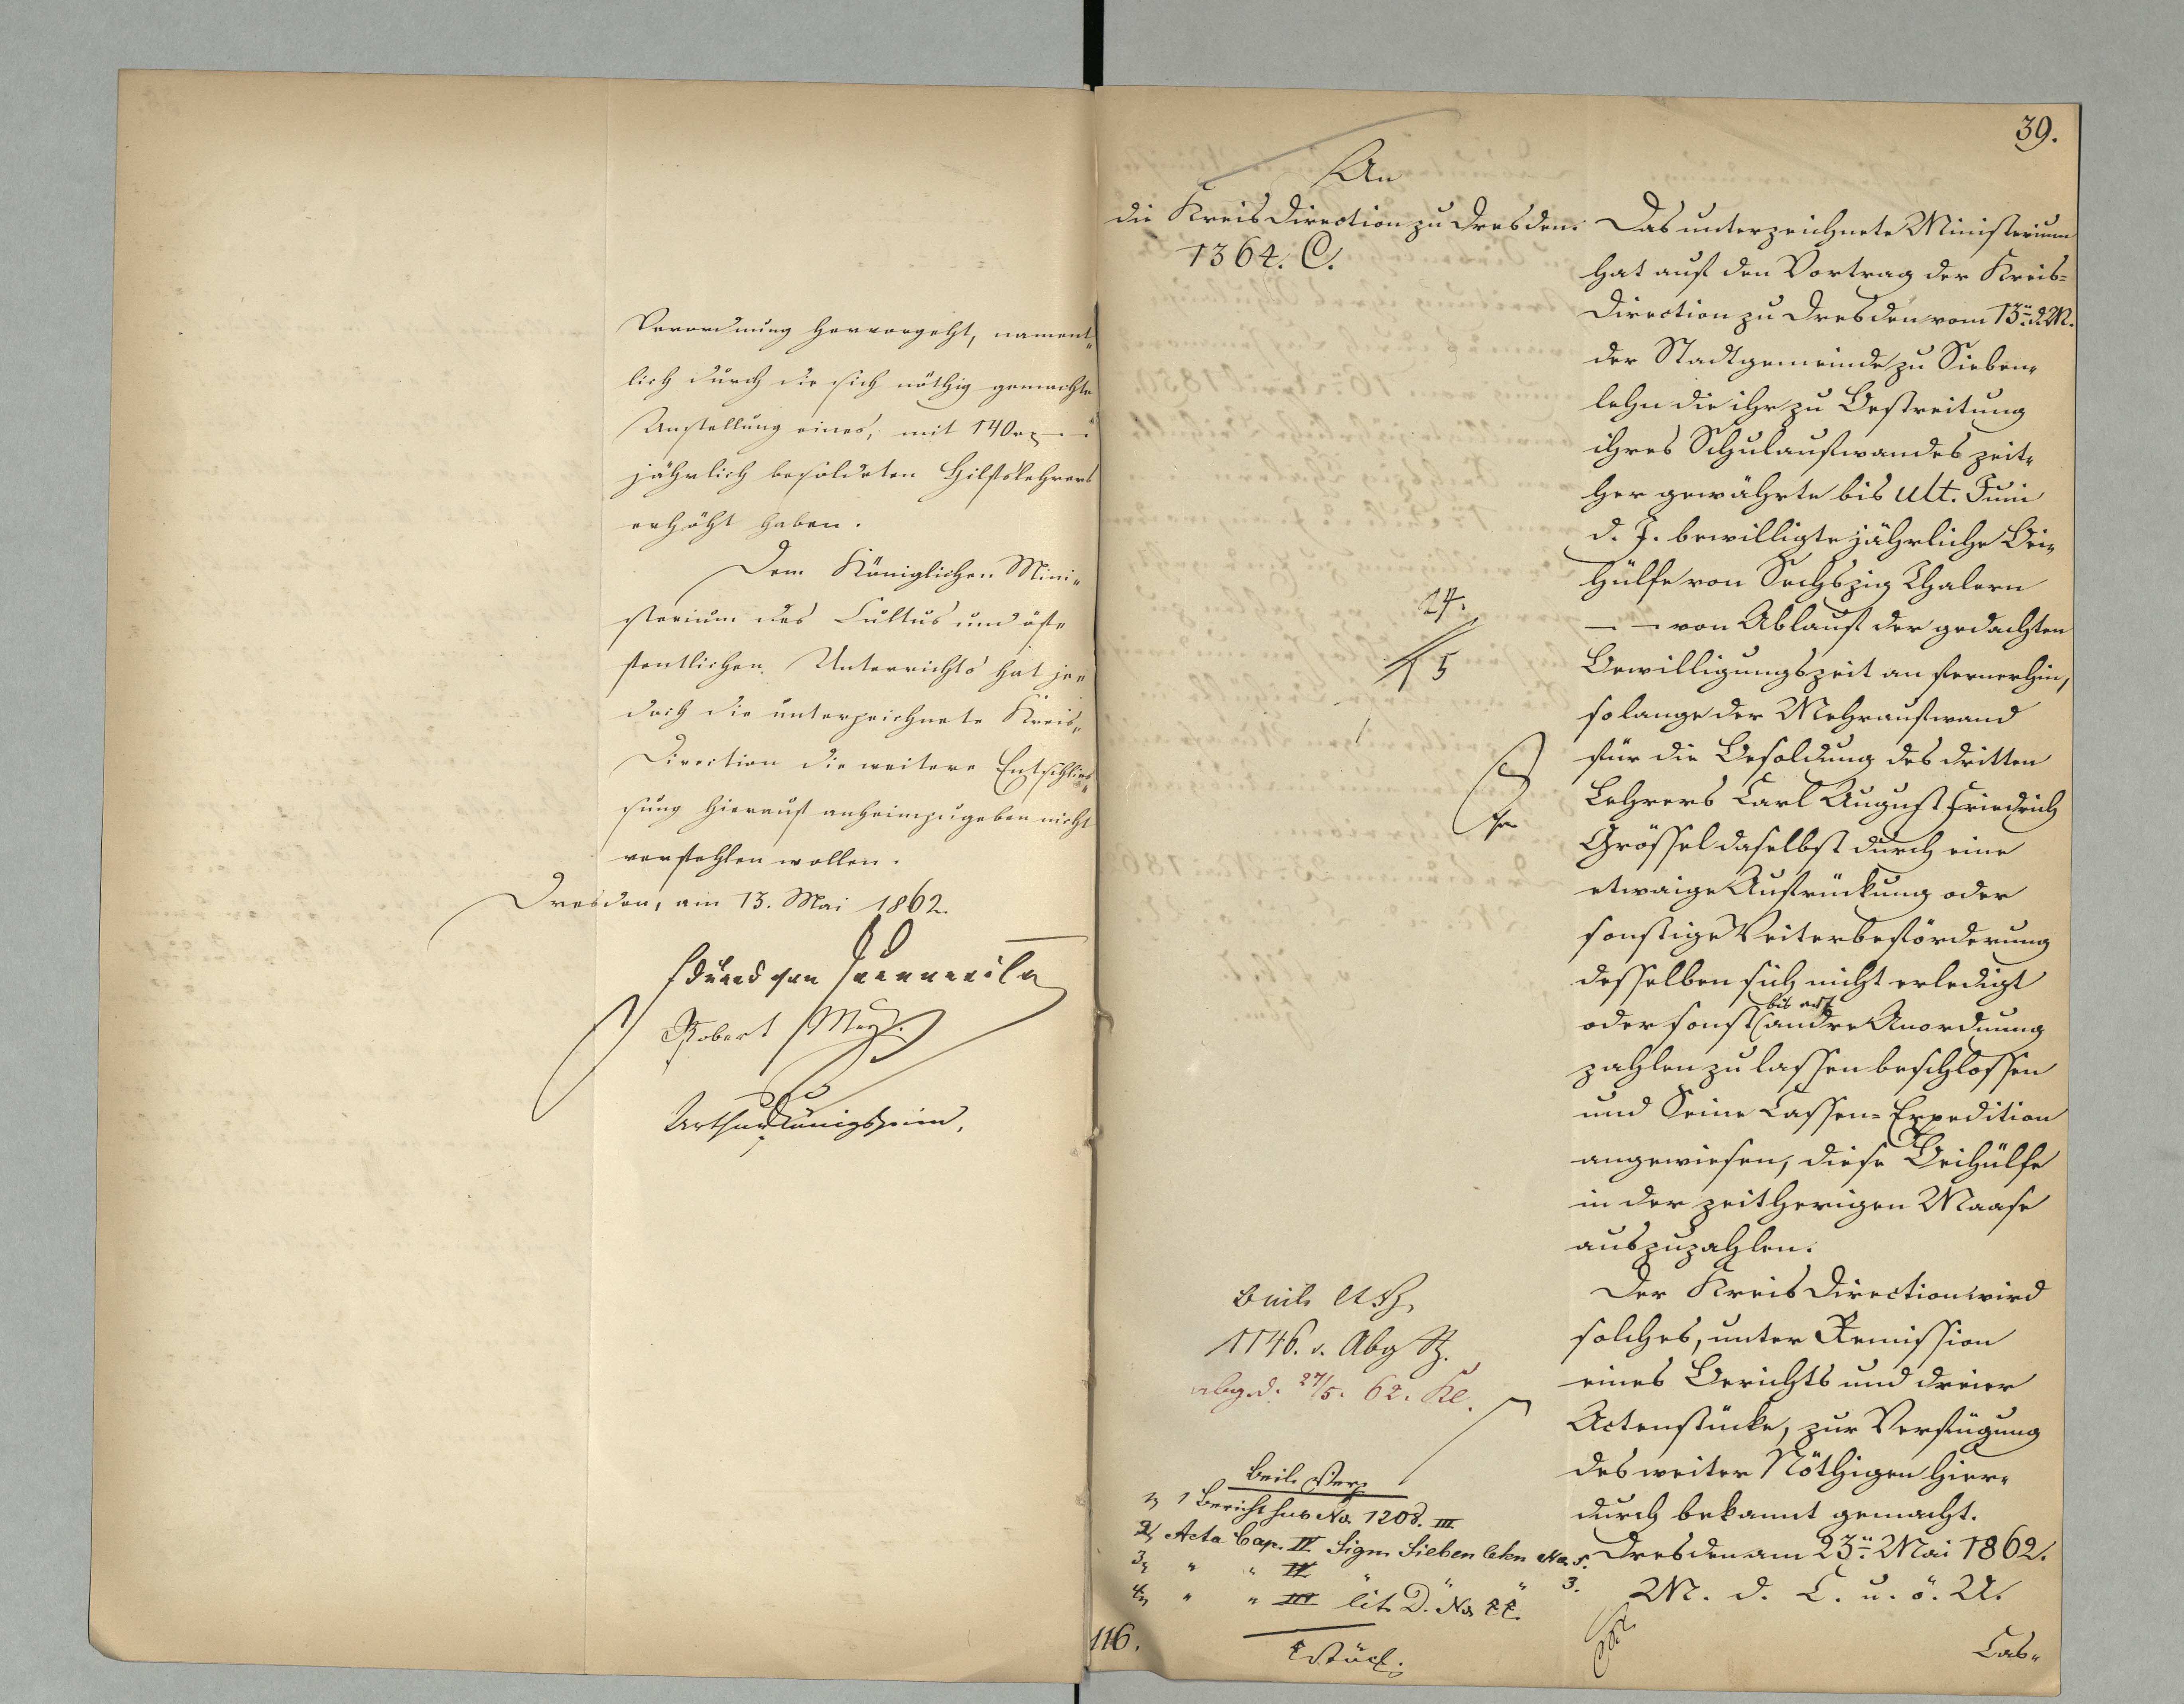 Verordnung hervorgeht, nament-
lich durch die sich nöthig gemachte
Anstellung eines, mit 140 rℓ — „
jährlich besoldeten Hilfslehrers
erhöht haben.
Dem Königlichen Mini-
sterium des Cultus und öf-
fentlichen Unterrichts hat je-
doch die unterzeichnete Kreis-
Direction die weitere Entschlies-
sung hierauf anheimzugeben nicht
verfehlen wollen.
Dresden, am 13. Mai 1862.
Robert
Arthur Königsheim.
39.
An
die KreisDirection zu Dresden.
1364. C.
Das unterzeichnete Ministerium
hat auf den Vortrag der Kreis-
Direction zu Dresden vom 13n. d. M.
der Stadtgemeinde zu Sieben-
lehn die ihr zu Bestreitung
ihres Schulaufwandes zeit-
her gewährte bis ult. Juni
d. J. bewilligte jährliche Bei-
hülfe von Sechszig Thalern
— — von Ablauf der gedachten
Bewilligungszeit an fernerhin,
so lange der Mehraufwand
für die Besoldung des dritten
Lehrers Carl August Friedrich
Grössel daselbst durch eine
etwaige Aufrückung oder
sonstige Weiterbeförderung
desselben sich nicht erledigt
bis auf
oder sonst andre Anordnung
zahlen zu lassen beschlossen
und Seine Cassen-Expedition
angewiesen, diese Beihülfe
in der zeitherigen Maase
auszuzahlen.
Der KreisDirection wird
solches, unter Remission
eines Berichts und dreier
Actenstücke, zur Verfügung
des weiter Nöthigen hier-
durch bekannt gemacht.
Dresden am 23n. Mai 1862.
M. d. C. u. ö. U.
Cas-
24.
5
1146. v. Abg
abg. d. 27/5. 62.
Beil. Verz
1, 1 Bericht sub No. 1208. III
2, Acta Cap. IV Sign. Siebenlehn No. 5.
3, " " IV " " 3.
4, " " III lit. D. No 22.
4 Stück.
116.